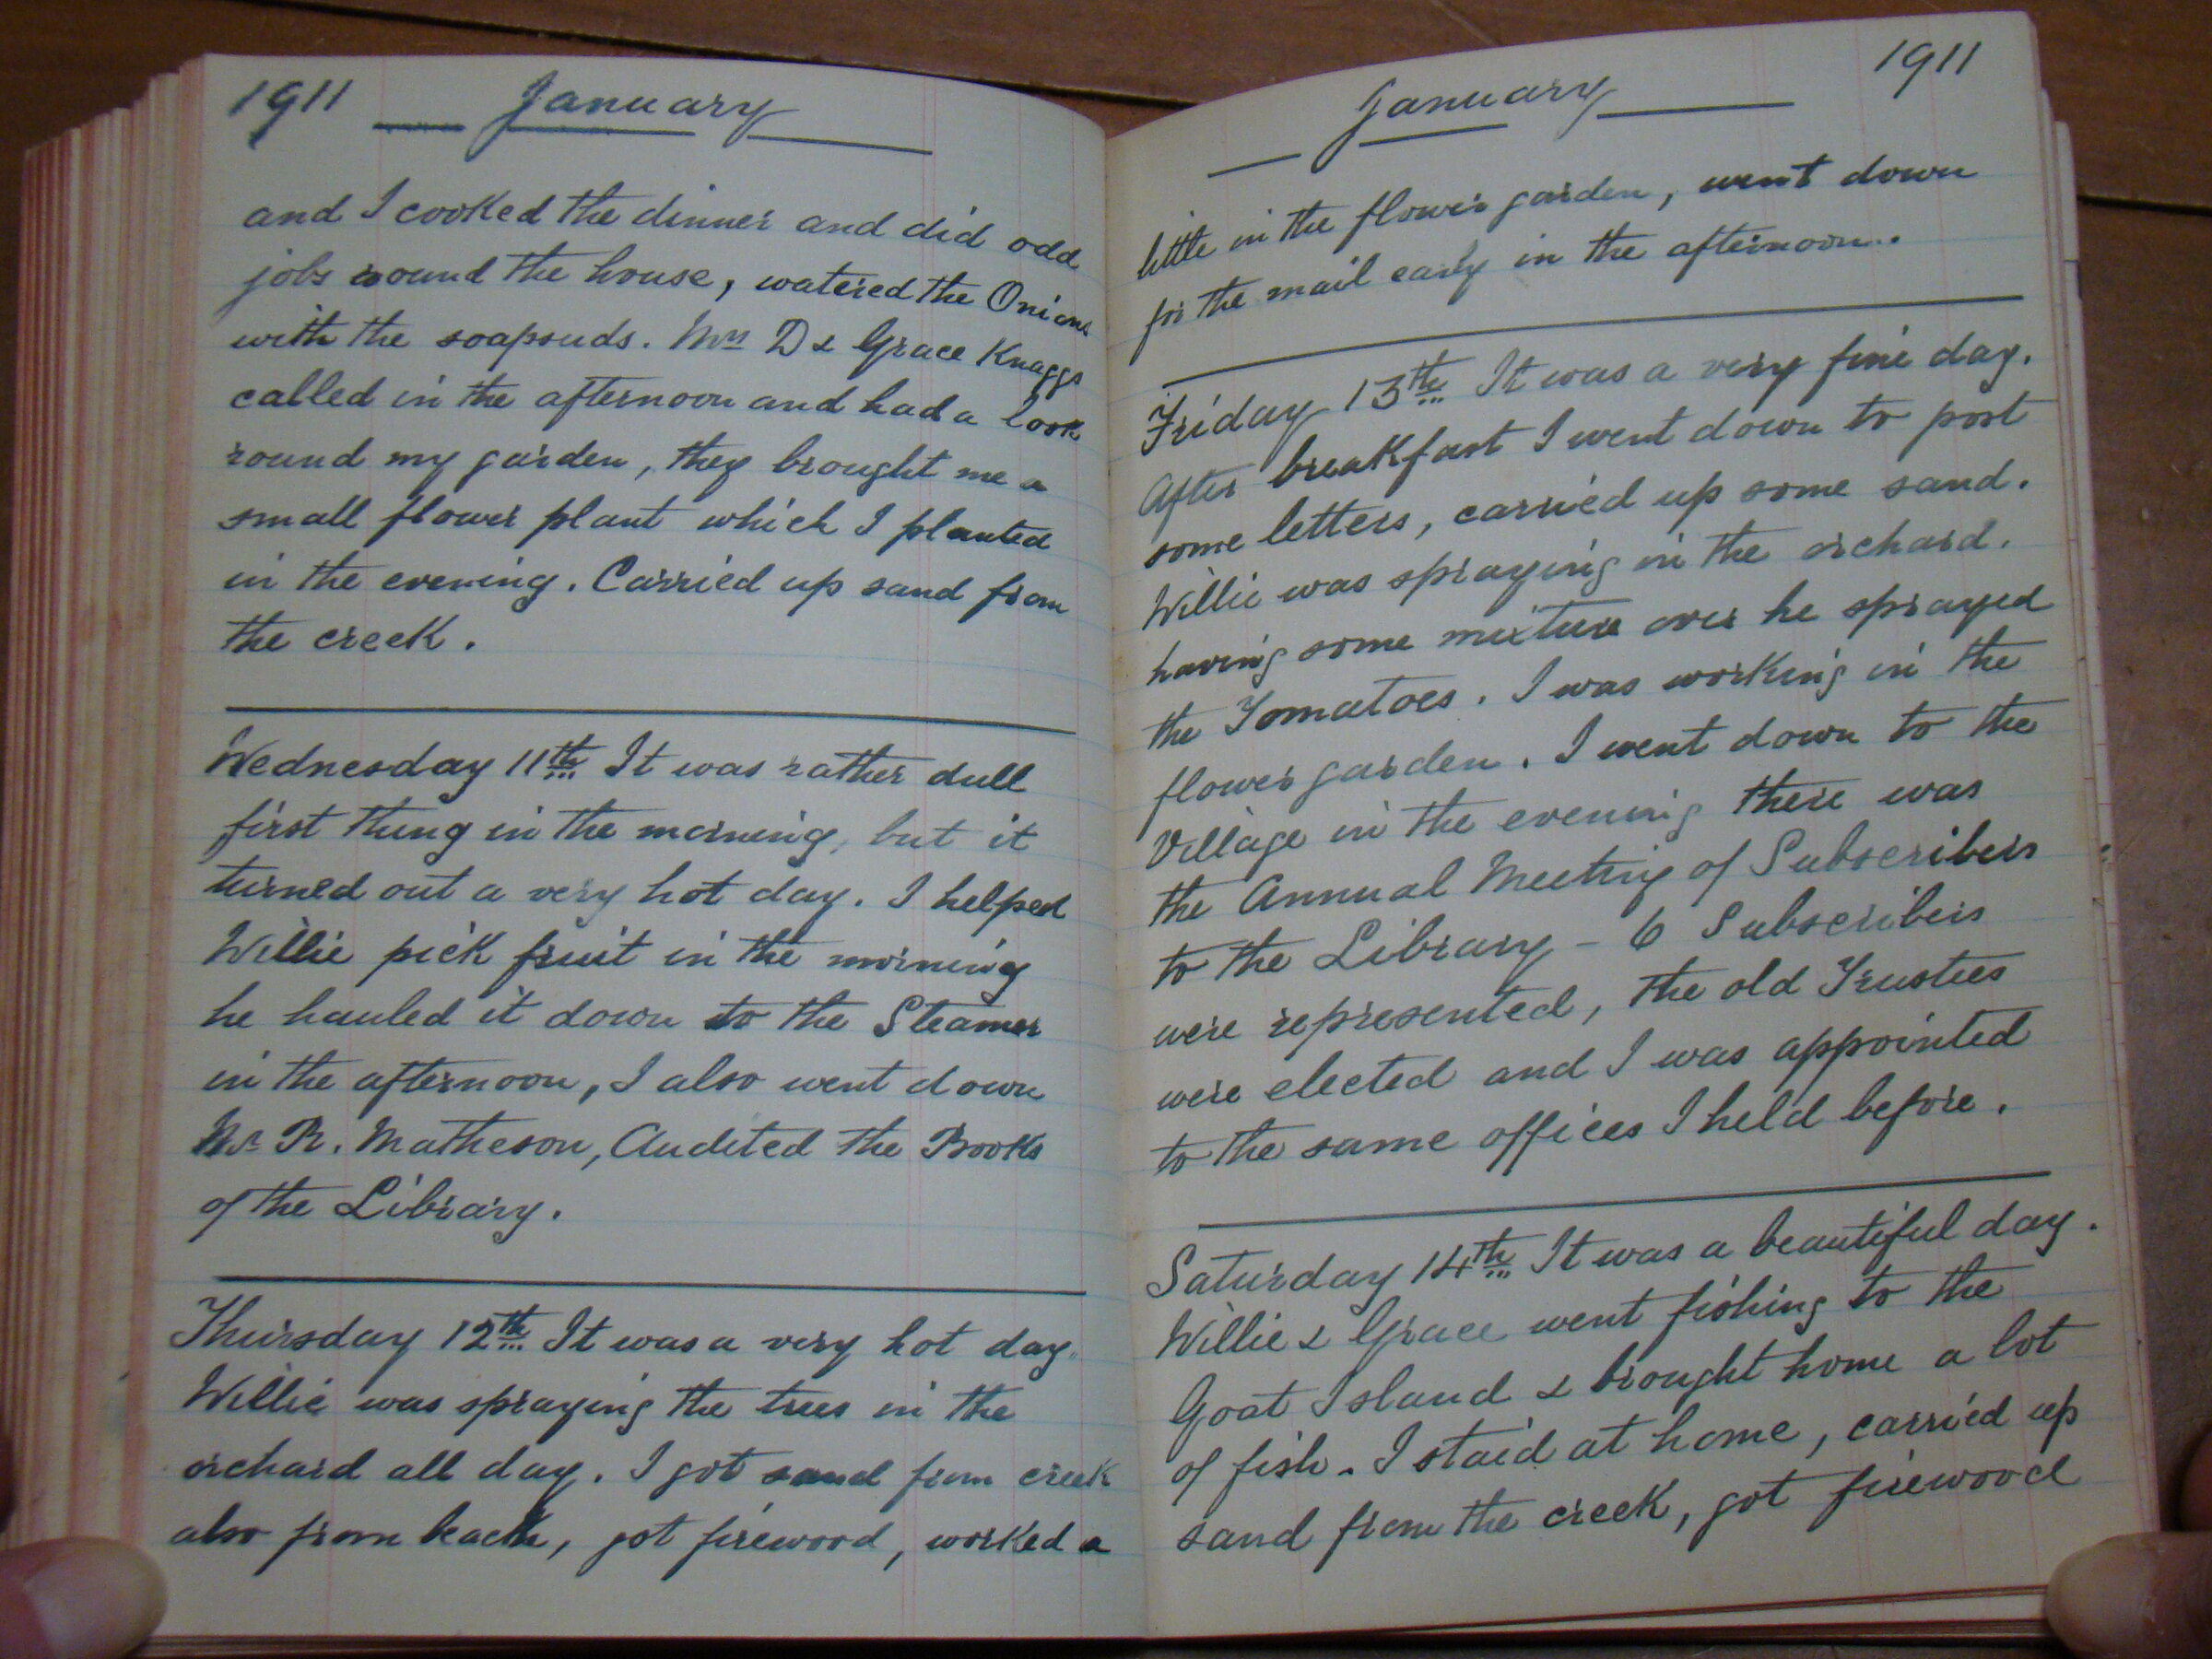 1911 January
and I cooked the dinner and did odd
jobs round the house, watered the Onions
with the soapsuds. Mrs D & Grace Knaggs
called in the afternoon and had a look
round my garden, they brought me a
small flower plant which I planted
in the evening. Carried up sand from
the creek.
Wednesday 11th It was rather dull
first thing in the morning, but it
turned out a very hot day. I helped
Willie pick fruit in the morning
he hauled it down to the Steamer
in the afternoon, I also went down
Mr R. Matheson, Audited the Books
of the Library.
Thursday 12th It was a very hot day.
Willie was spraying the trees in the
orchard all day. I got sand from creek
also from beach, got firewood, worked a
January 1911
little in the flower garden, went down
for the mail early in the afternoon..
Friday 13th It was a very fine day.
After breakfast I went down to post
some letters, carried up some sand.
Willie was spraying in the orchard.
having some mixture over he sprayed
the Tomatoes. I was working in the
flower garden. I went down to the
Village in the evening there was
the Annual Meeting of Subscribers
to the Library – 6 Subscribers
were represented, the old Trustees
were elected and I was appointed
to the same offices I held before.
Saturday 14th It was a beautiful day.
Willie & Grace went fishing to the
Goat Island & brought home a lot
of fish. I staid at home, carried up
sand from the creek, got firewood